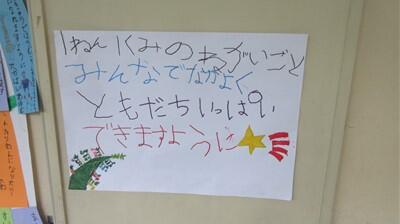 1ねん1くみのねがいごと
みんなでなかよく
ともだちいっぱい
できますように